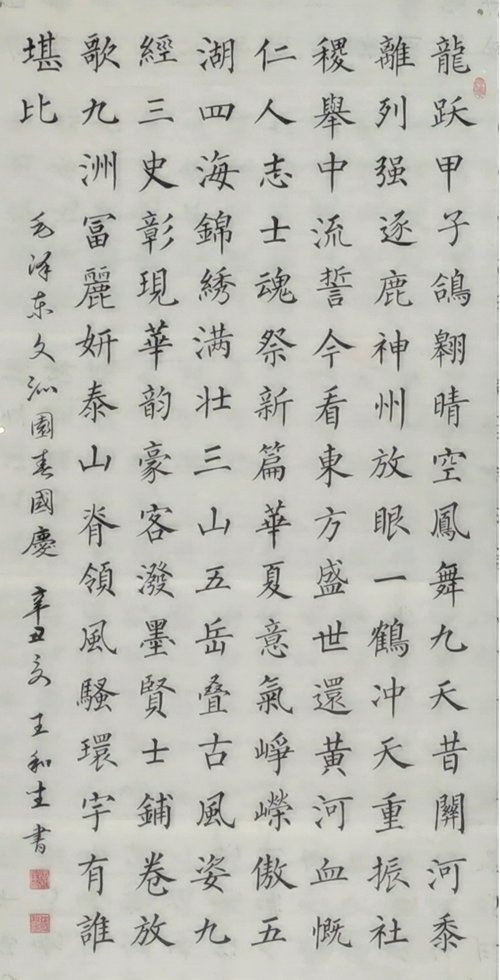 龍跃甲子鴿翱晴空鳳舞九天昔關河黍
離列强逐鹿神州放眼一鶴冲天重振社
稷舉中流誓今看東方盛世還黄河血慨
仁人志士魂祭新篇華夏意氣崢嶸傲五
湖四海錦綉满壮三山五岳叠古風姿九
經三史彰現華韵豪客潑墨賢士鋪卷放
歌九洲冨麗妍泰山脊領風騷環宇有誰
堪比
毛泽东文沁園春國慶 辛丑 王和生書